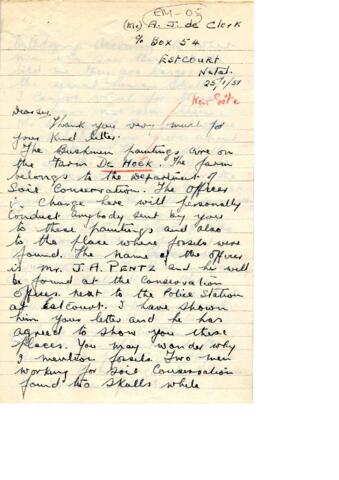 EM-05
(Mr) A. J. de Clerk
c/o Box 54
ESTCOURT
Natal.
25/1/51
New Site
Dear Sir,
Thank you very much for
your kind letter.
The Bushmen paintings are on
the Farm DE HOEK. The farm
belongs to the Department of
Soil Conservation. The officer
in charge here will personally
conduct anybody sent by you
to these paintings and also
to the place where fossils were
found. The name of the officer
is Mr. J. A. PENTZ and he will
be found at the Conservation
Offices next to the Police Station
at Estcourt. I have shown
him your letter and he has
agreed to show you these
places. You may wonder why
I mention fossils. Two men
working for Soil Conservation
found two skulls while